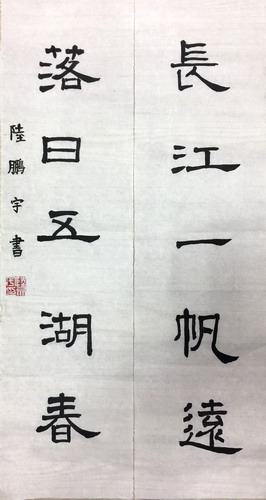 長江一帆遠
落日五湖春
陸鵬宇書